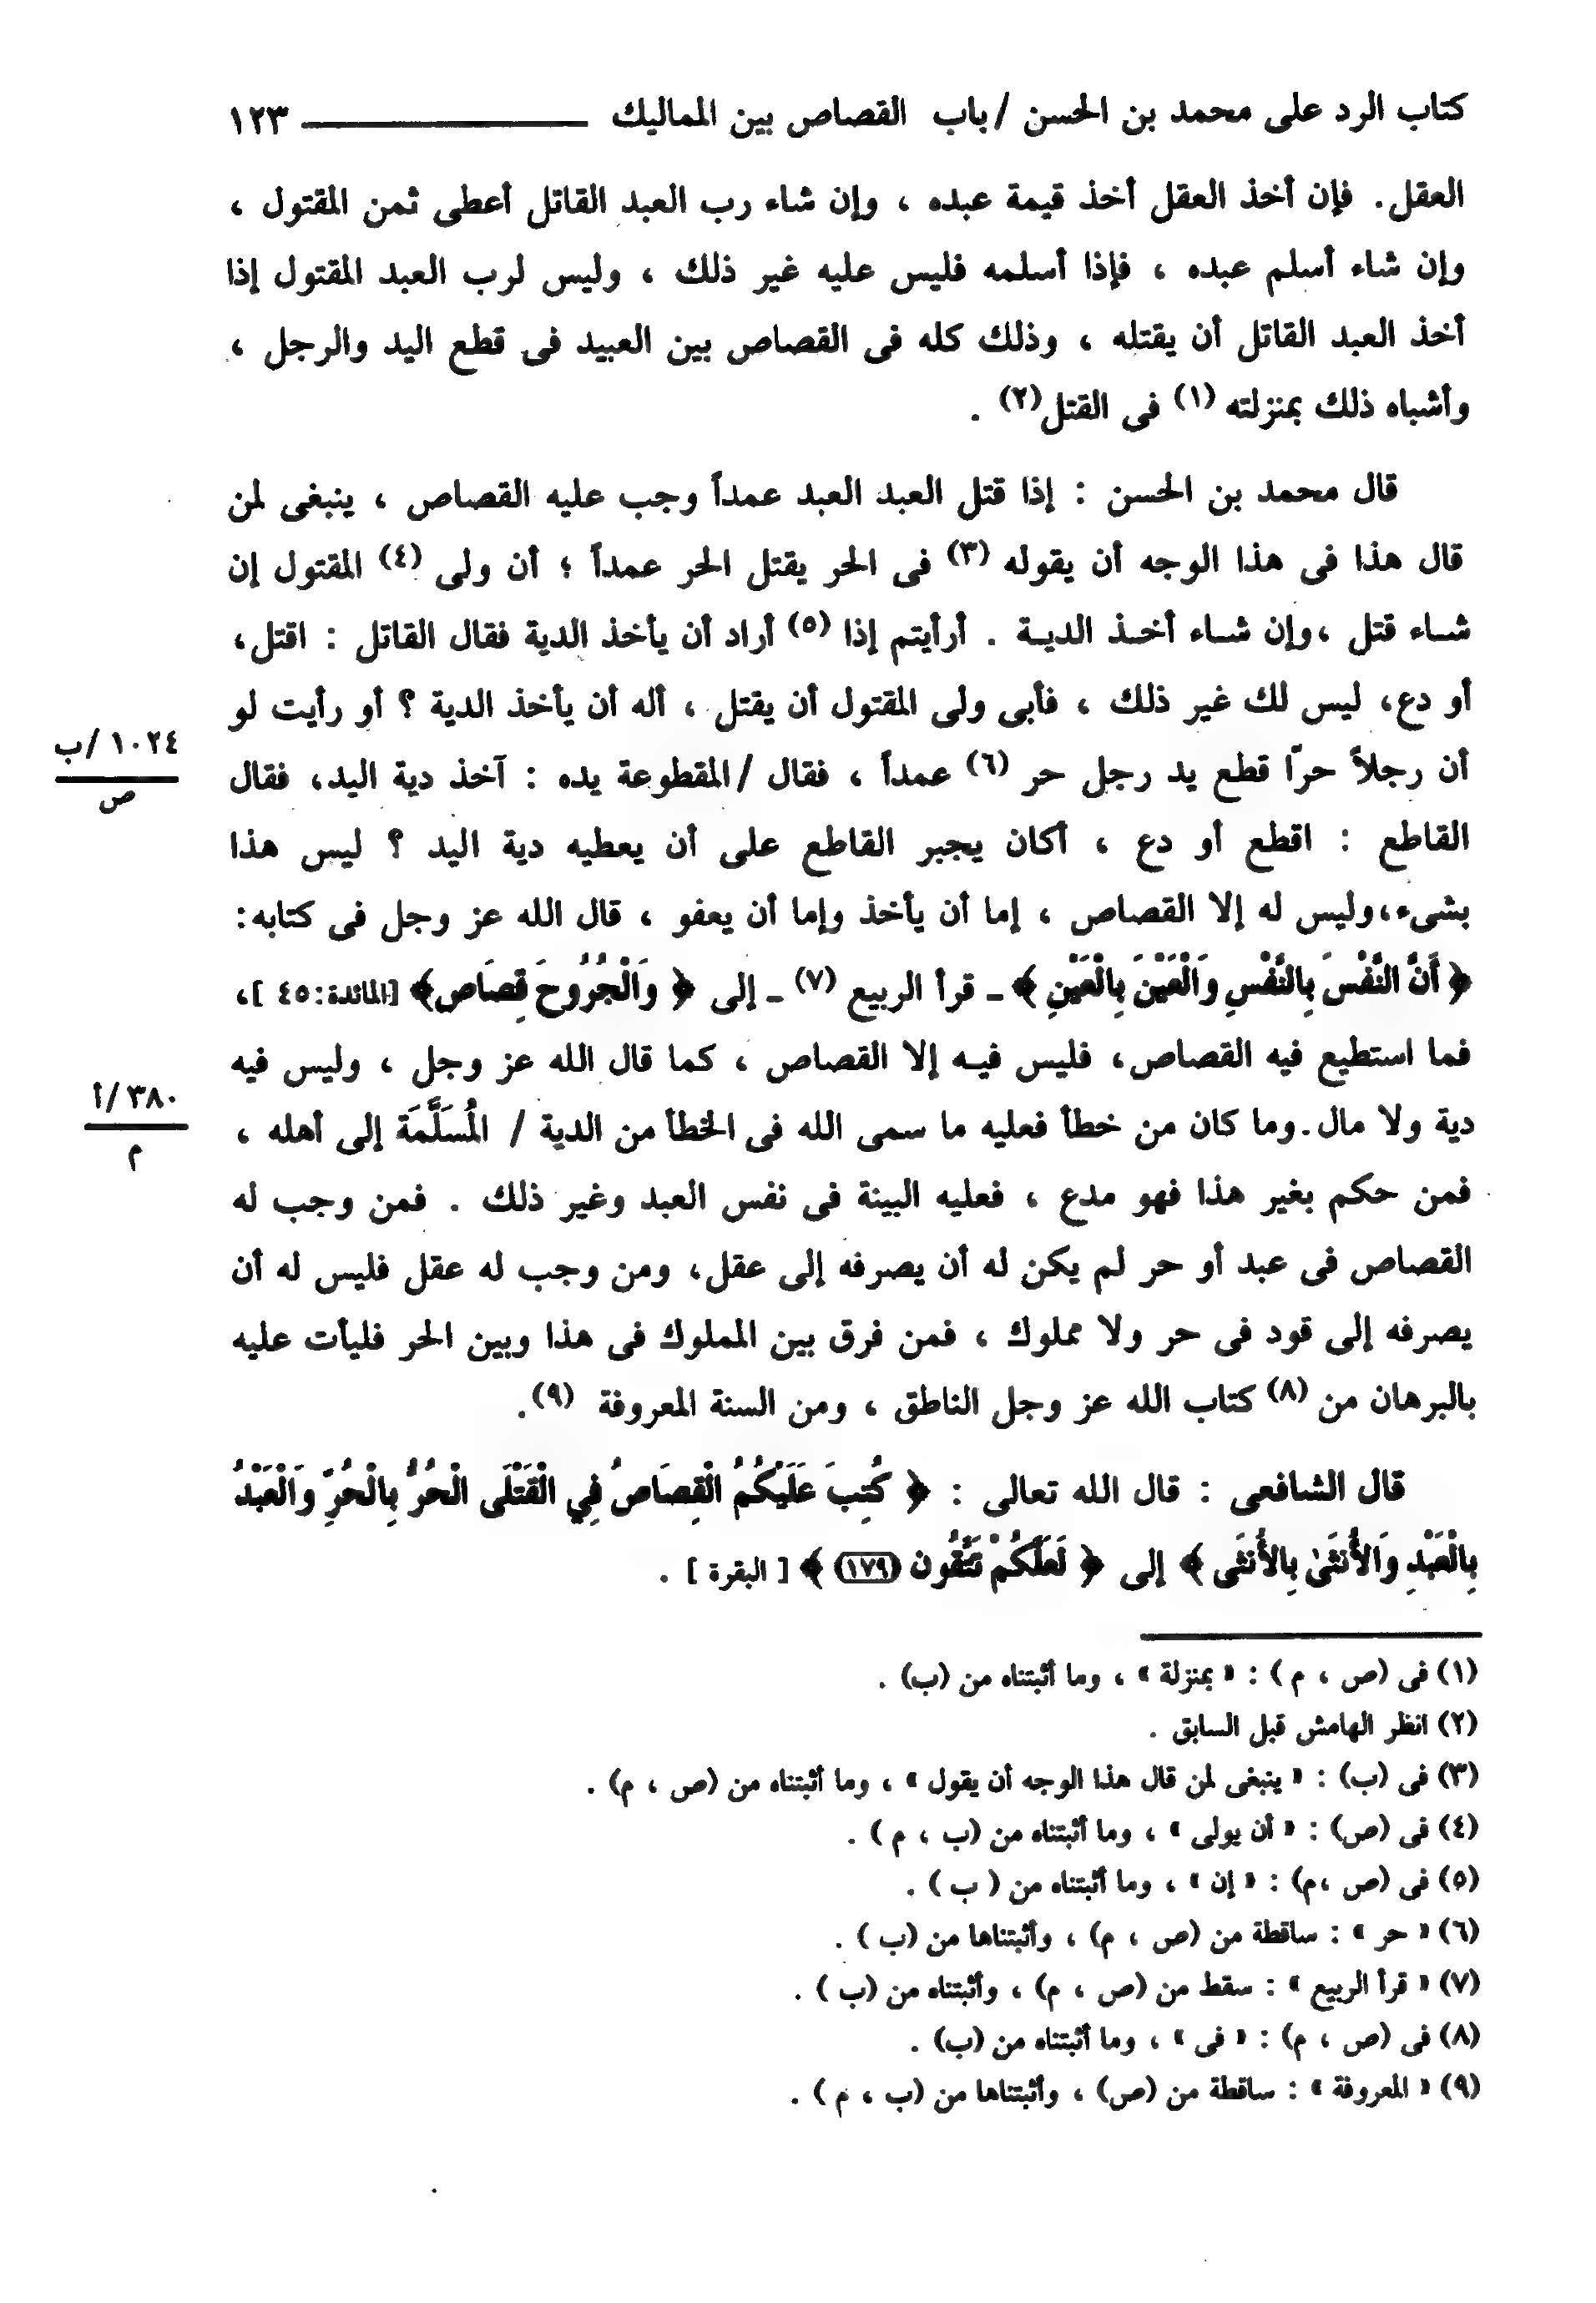 كتاب الرد على محمد بن الحسن / باب القصاص بين المماليك ــــــــــــ ١٢٣
العقل. فإن أخذ العقل أخذ قيمة عبده ، وإن شاء رب العبد القاتل أعطى ثمن المقتول ،
وإن شاء أسلم عبده ، فإذا أسلمه فليس عليه غير ذلك ، وليس لرب العبد المقتول إذا
أخذ العبد القاتل أن يقتله ، وذلك كله فى القصاص بين العبيد فى قطع اليد والرجل ،
وأشباه ذلك بمنزلته (١) فى القتل(٢) .
قال محمد بن الحسن : إذا قتل العبد العبد عمداً وجب عليه القصاص ، ينبغى لمن
قال هذا فى هذا الوجه أن يقوله (٣) فى الحر يقتل الحر عمداً ؛ أن ولى (٤) المقتول إن
شاء قتل ،وإن شاء أخذ الدية . أرأيتم إذا (٥) أراد أن يأخذ الدية فقال القاتل : اقتل،
أو دع، ليس لك غير ذلك ، فأبى ولى المقتول أن يقتل ، أله أن يأخذ الدية ؟ أو رأيت لو
١٠٢٤ /ب
ص
أن رجلاً حرّا قطع يد رجل حر (٦) عمداً ، فقال / المقطوعة يده : آخذ دية اليد، فقال
القاطع : اقطع أو دع ، أكان يجبر القاطع على أن يعطيه دية اليد ؟ ليس هذا
بشىء،وليس له إلا القصاص ، إما أن يأخذ وإما أن يعفو ، قال الله عز وجل فى كتابه:
﴿ أَنَّ النَّفْسَ بِالنَّفْسِ وَالْعَيْنَ بِالْعَيْنِ ﴾ ـ قرأ الربيع (٧) ـ إلى ﴿ وَالْجُرُوحَ قِصَاص﴾ [المائدة:٤٥ ]،
فما استطيع فيه القصاص، فليس فيه إلا القصاص ، كما قال الله عز وجل ، وليس فيه
٣٨٠ /أ
م
دية ولا مال.وما كان من خطأ فعليه ما سمى الله فى الخطأ من الدية / المُسَلَّمَة إلى أهله ،
فمن حكم بغير هذا فهو مدع ، فعليه البينة فى نفس العبد وغير ذلك . فمن وجب له
القصاص فى عبد أو حر لم يكن له أن يصرفه إلى عقل، ومن وجب له عقل فليس له أن
يصرفه إلى قود فى حر ولا مملوك ، فمن فرق بين المملوك فى هذا وبين الحر فليأت عليه
بالبرهان من (٨) كتاب الله عز وجل الناطق ، ومن السنة المعروفة (٩).
قال الشافعى : قال الله تعالى : ﴿ كُتِبَ عَلَيْكُمُ الْقِصَاصُ فِي الْقَتْلَى الْحُرُّ بِالْحُرِّ وَالْعَبْدُ
بِالْعَبْدِ وَالأُنثَىٰ بِالأُنثَى ﴾ إلى ﴿ لَعَلَّكُمْ تَتَّقُون (١٧٩) ﴾ [ البقرة ] .
(١) فى (ص ، م ) : « بمنزلة » ، وما أثبتناه من (ب) .
(٢) انظر الهامش قبل السابق .
(٣) فى (ب) : « ينبغى لمن قال هذا الوجه أن يقول » ، وما أثبتناه من (ص ، م) .
(٤) فى (ص) : « أن يولى » ، وما أثبتناه من (ب ، م ) .
(٥) فى (ص ،م) : « إن » ، وما أثبتناه من ( ب ) .
(٦) « حر » : ساقطة من (ص ، م) ، وأثبتناها من (ب ) .
(٧) « قرأ الربيع » : سقط من (ص ، م) ، وأثبتناه من (ب ) .
(٨) فى (ص ، م) : « فى » ، وما أثبتناه من (ب) .
(٩) « المعروفة » : ساقطة من (ص) ، وأثبتناها من (ب ، م ) .